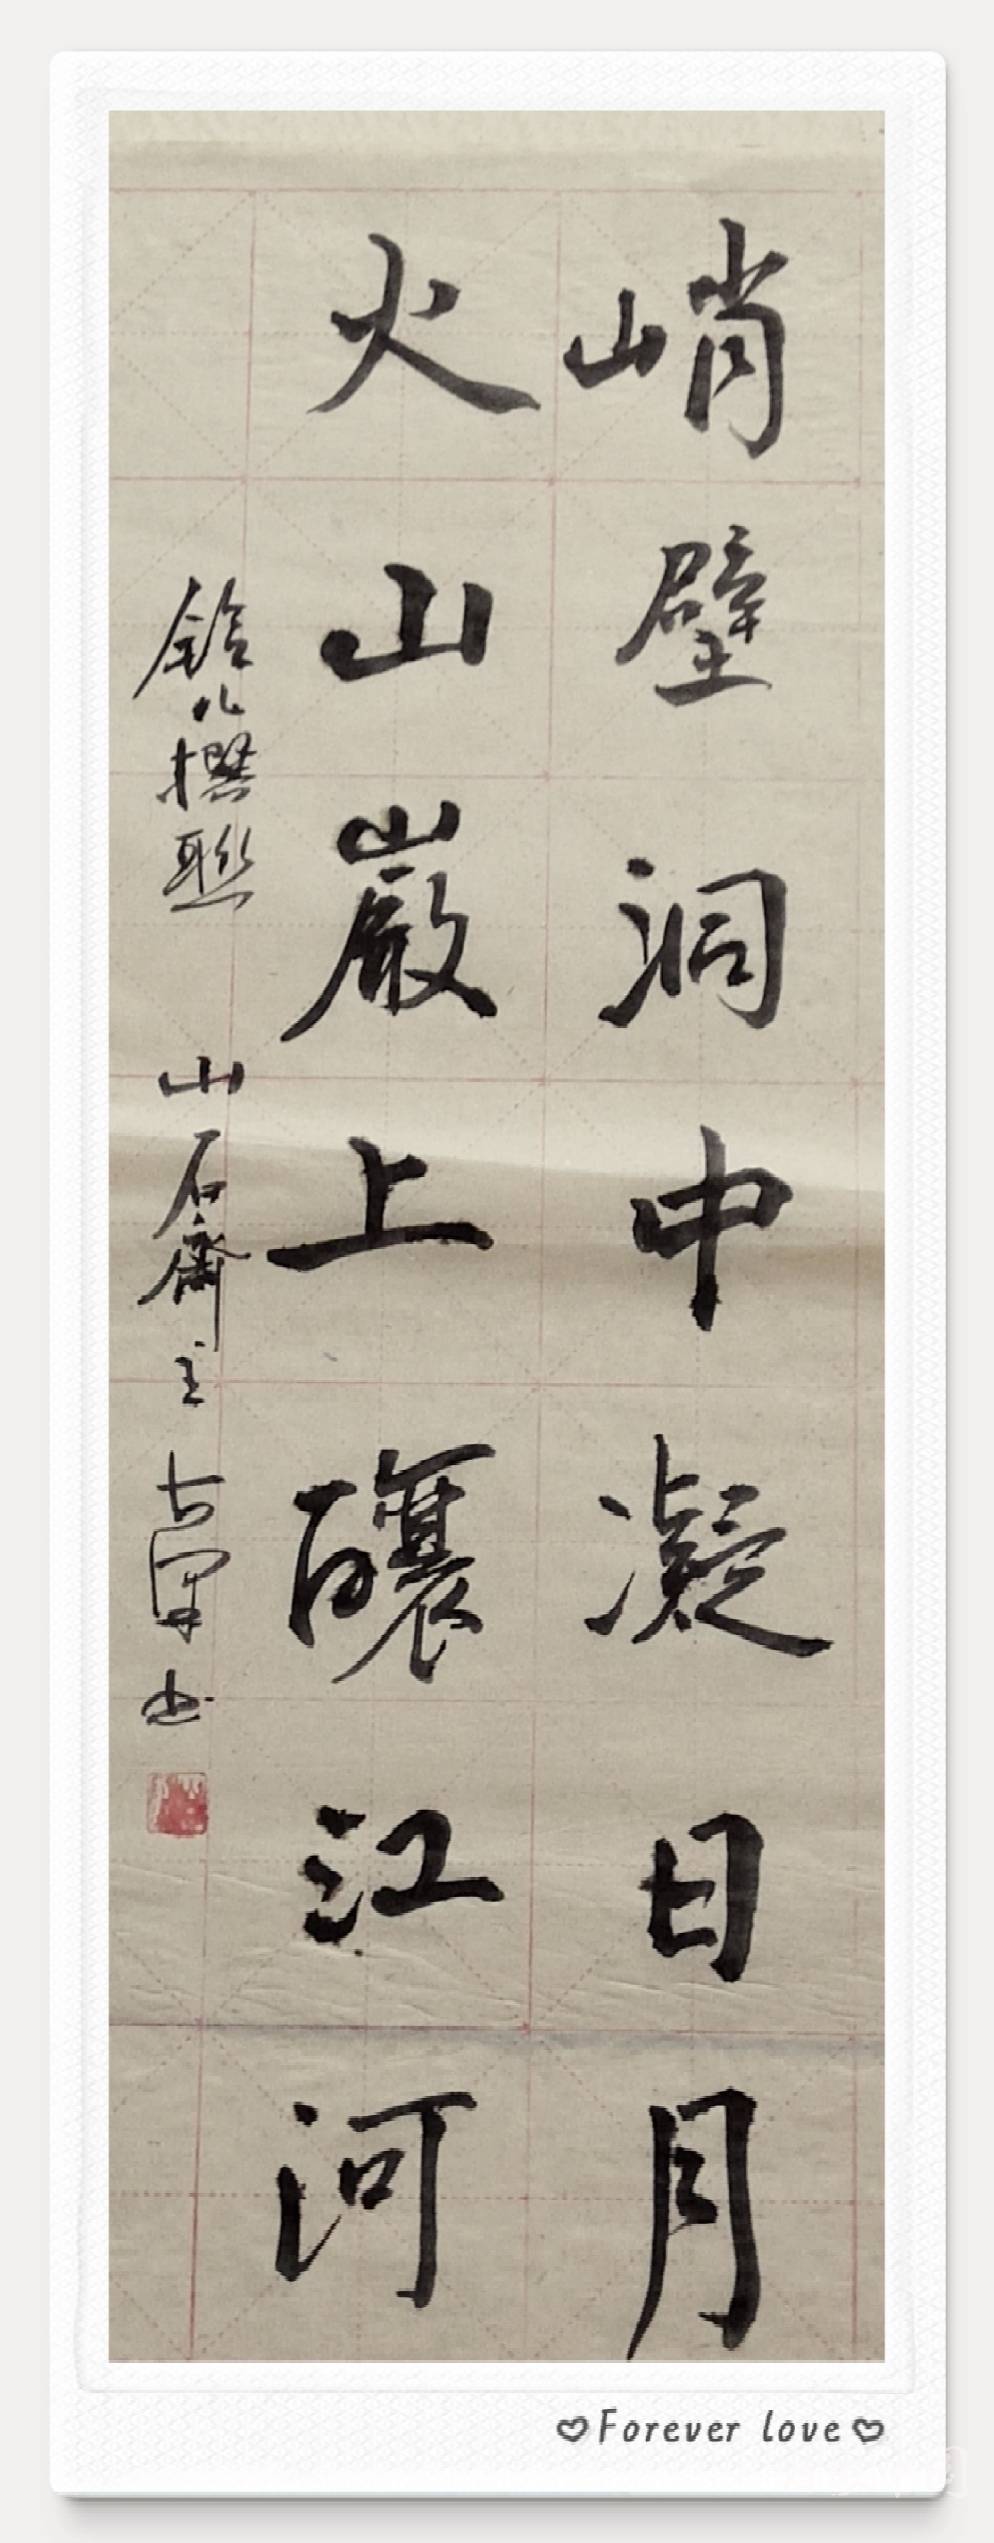 峭壁洞中凝日月
火山巖上釀江河
撰聯 山石齋主
♡Forever love♡